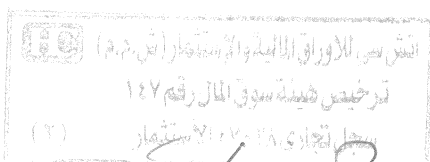 اتش سى للاوراق المالية والاستثمار (ش.م.م) HC
ترخيص هيئة سوق المال رقم ١٤٧
سجل تجارى الاستثمار (٦)